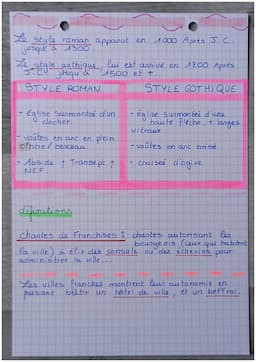 Le style roman apparut en 1000 Après J.C.
jusqu'à 1300.
Le style gothique, lui est arrivé en 1200 Après
J.C jusqu'à 1500 et +.
STYLE ROMAN
STYLE GOTHIQUE
- église surmontée d'un
clocher.
- voûtes en arc en plein
cintre / berceau
- Abside, Transept,
NEF.
- église surmontée d'une
haute flèche + larges
vitraux
- voûtes en arc brisé
- croisée d'ogive
définitions
chartes de Franchises : chartes autorisant les
bourgeois (ceux qui habitent
la ville) à élir des consuls ou des échevins pour
administrer la ville...
Les villes franches montrent leur autonomie en
faisant bâtir un hôtel de ville, et un beffroi.